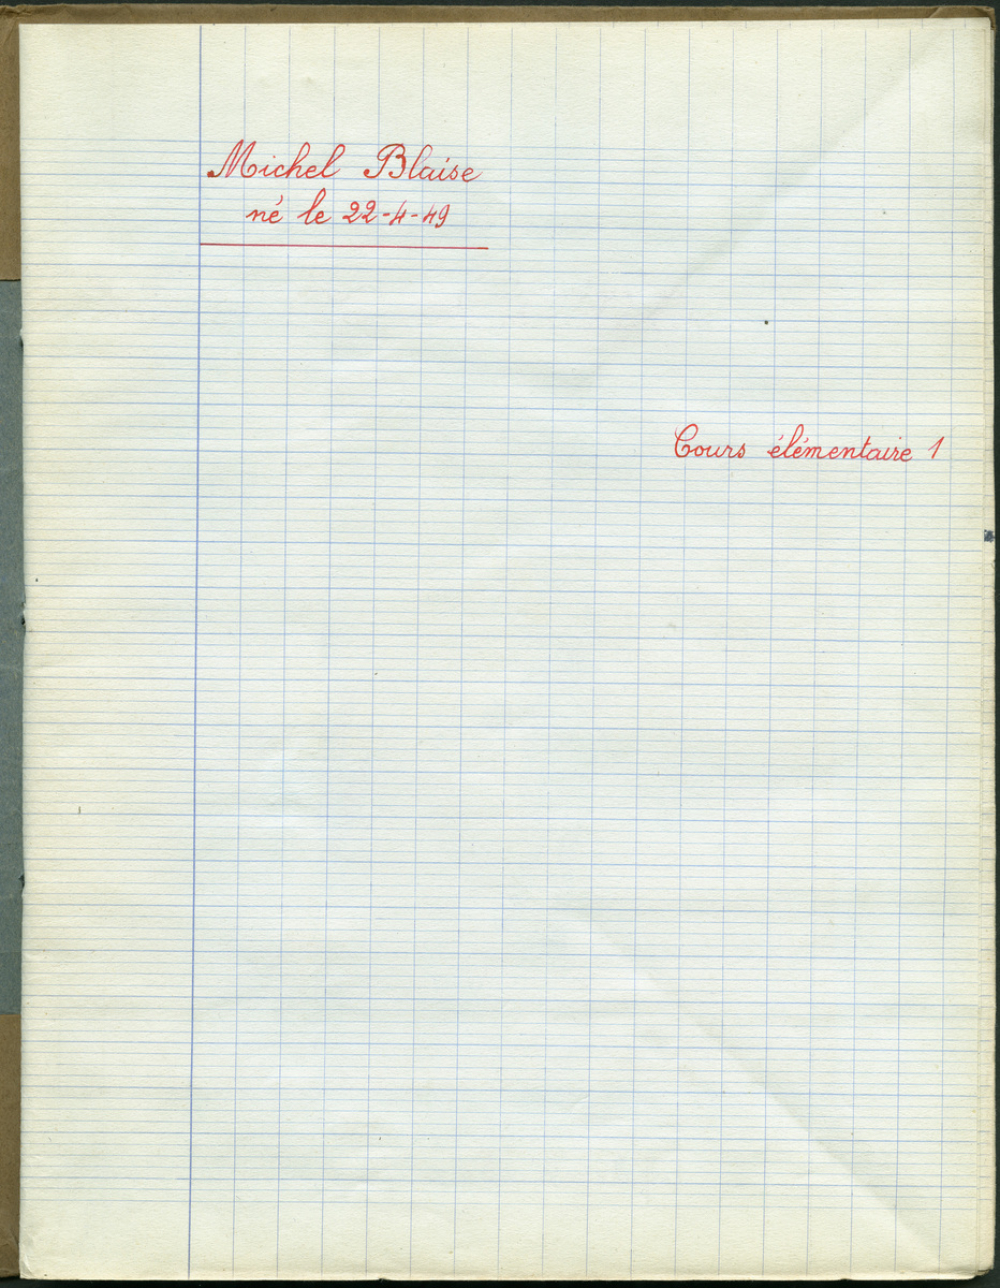 Michel Blaise
né le 22-4-49
Cours élémentaire 1